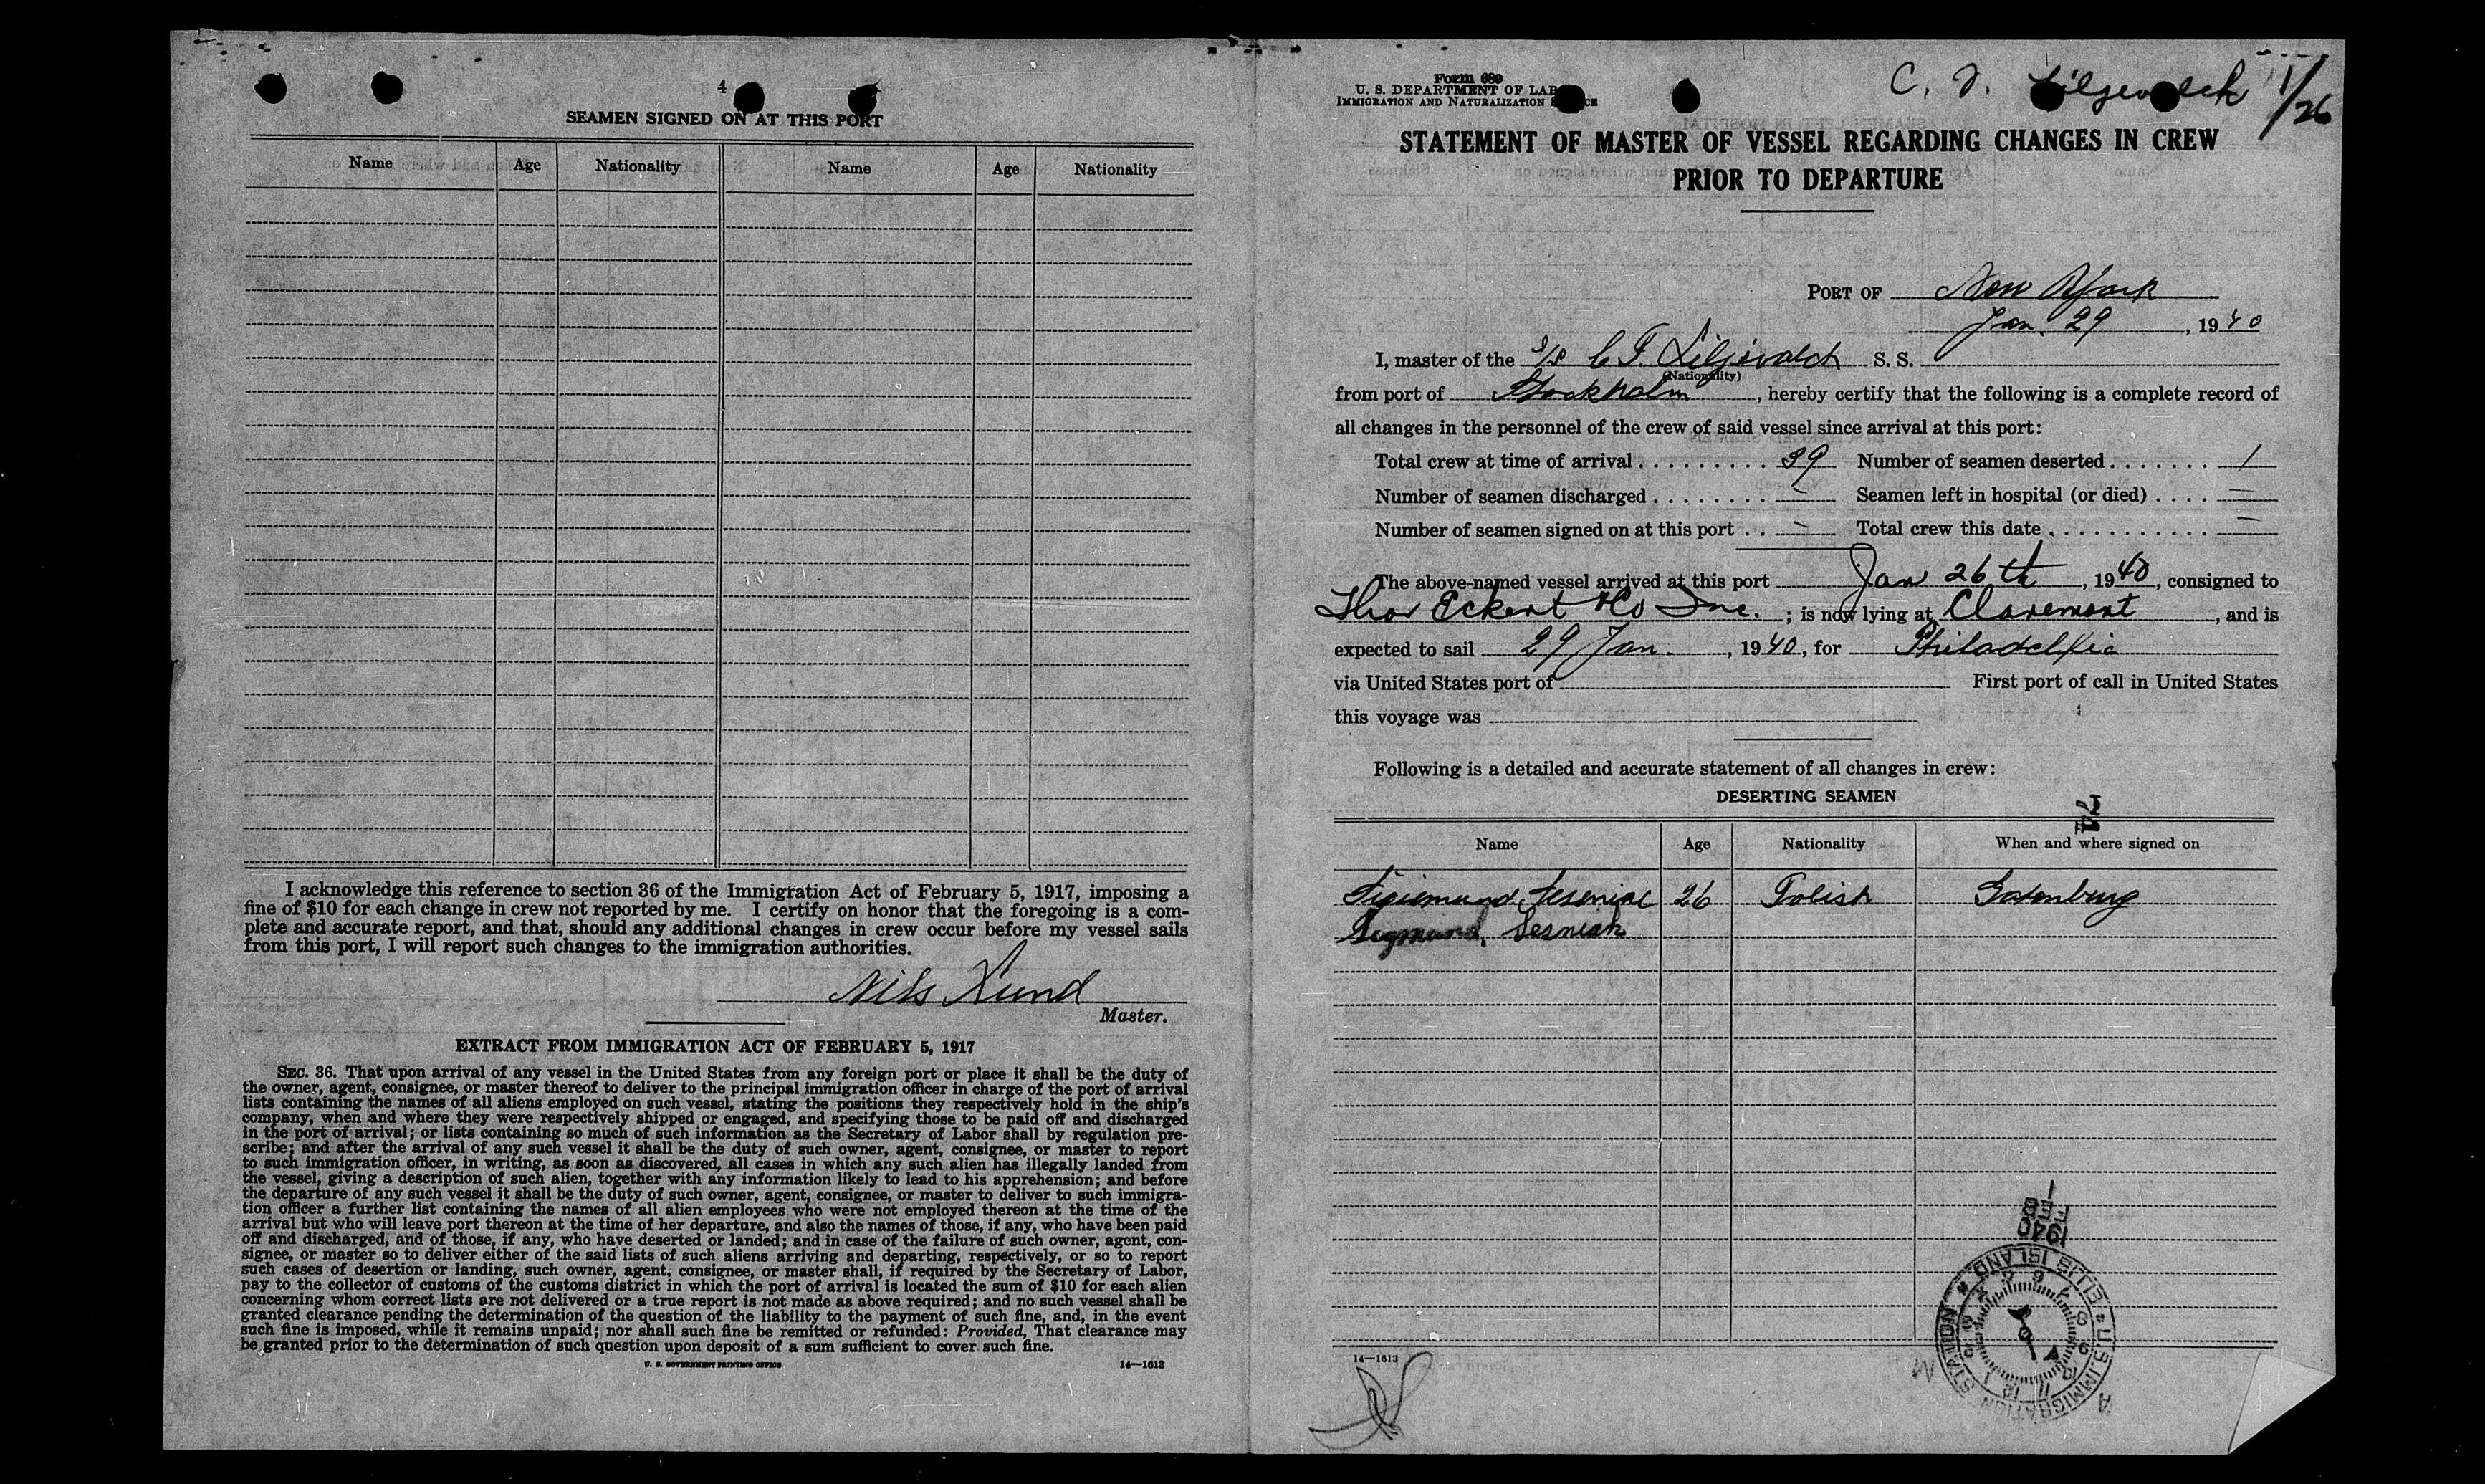 4
SEAMEN SIGNED ON AT THIS PORT
Name Age Nationality Name Age Nationality
I acknowledge this reference to section 36 of the Immigration Act of February 5, 1917, imposing a
fine of $10 for each change in crew not reported by me. I certify on honor that the foregoing is a com-
plete and accurate report, and that, should any additional changes in crew occur before my vessel sails
from this port, I will report such changes to the immigration authorities.
Nils Lund
Master.
EXTRACT FROM IMMIGRATION ACT OF FEBRUARY 5, 1917
SEC. 36. That upon arrival of any vessel in the United States from any foreign port or place it shall be the duty of
the owner, agent, consignee, or master thereof to deliver to the principal immigration officer in charge of the port of arrival
lists containing the names of all aliens employed on such vessel, stating the positions they respectively hold in the ship's
company, when and where they were respectively shipped or engaged, and specifying those to be paid off and discharged
in the port of arrival; or lists containing so much of such information as the Secretary of Labor shall by regulation pre-
scribe; and after the arrival of any such vessel it shall be the duty of such owner, agent, consignee, or master to report
to such immigration officer, in writing, as soon as discovered, all cases in which any such alien has illegally landed from
the vessel, giving a description of such alien, together with any information likely to lead to his apprehension; and before
the departure of any such vessel it shall be the duty of such owner, agent, consignee, or master to deliver to such immigra-
tion officer a further list containing the names of all alien employees who were not employed thereon at the time of the
arrival but who will leave port thereon at the time of her departure, and also the names of those, if any, who have been paid
off and discharged, and of those, if any, who have deserted or landed; and in case of the failure of such owner, agent, con-
signee, or master so to deliver either of the said lists of such aliens arriving and departing, respectively, or so to report
such cases of desertion or landing, such owner, agent, consignee, or master shall, if required by the Secretary of Labor,
pay to the collector of customs of the customs district in which the port of arrival is located the sum of $10 for each alien
concerning whom correct lists are not delivered or a true report is not made as above required; and no such vessel shall be
granted clearance pending the determination of the question of the liability to the payment of such fine, and, in the event
such fine is imposed, while it remains unpaid; nor shall such fine be remitted or refunded: Provided, That clearance may
be granted prior to the determination of such question upon deposit of a sum sufficient to cover such fine.
U. S. GOVERNMENT PRINTING OFFICE 14—1613
Form 689
U. S. DEPARTMENT OF LAB
IMMIGRATION AND NATURALIZATION S CE
1/26
STATEMENT OF MASTER OF VESSEL REGARDING CHANGES IN CREW
PRIOR TO DEPARTURE
PORT OF New York
Jan. 29, 1940
I, master of the S/S C F. Liljevalch S. S.
(Nationality)
from port of Stockholm, hereby certify that the following is a complete record of
all changes in the personnel of the crew of said vessel since arrival at this port:
Total crew at time of arrival 39 Number of seamen deserted 1
Number of seamen discharged - Seamen left in hospital (or died) -
Number of seamen signed on at this port - Total crew this date -
The above-named vessel arrived at this port Jan 26th, 1940, consigned to
Thor Eckert & Co Inc.; is now lying at Claremont, and is
expected to sail 29 Jan., 1940, for Philadelfia
via United States port of First port of call in United States
this voyage was
Following is a detailed and accurate statement of all changes in crew:
DESERTING SEAMEN
Name Age Nationality When and where signed on
26 Polish Gotenburg
Sigmund, Lesniak
1940
FEB
1
U.S. IMMIGRATION STATION ELLIS ISLAND
14—1613